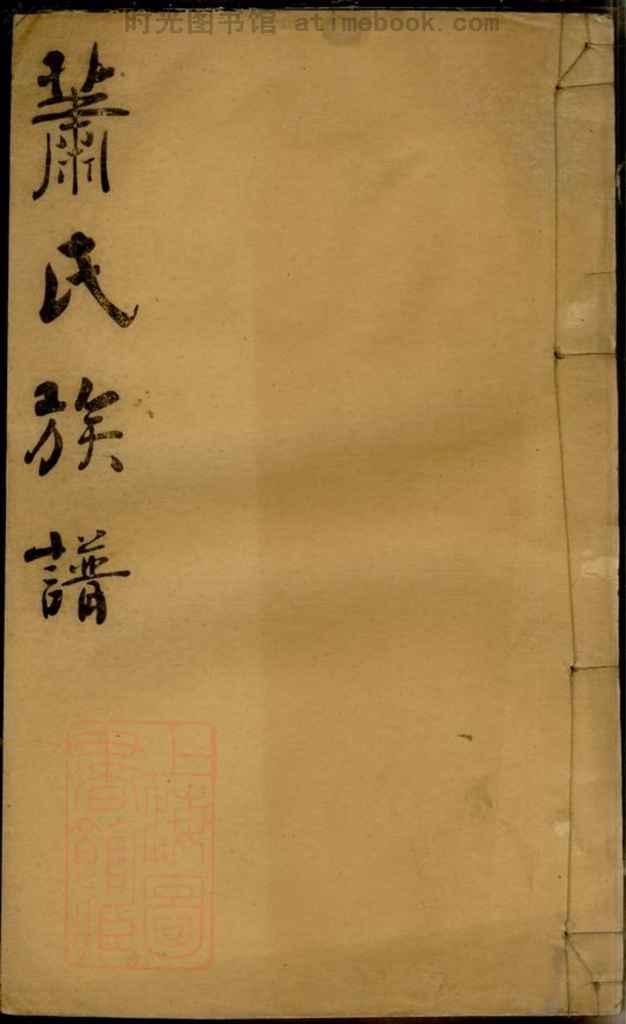 时光图书馆 atimebook.com
蕭氏族譜
上海圖
書館藏